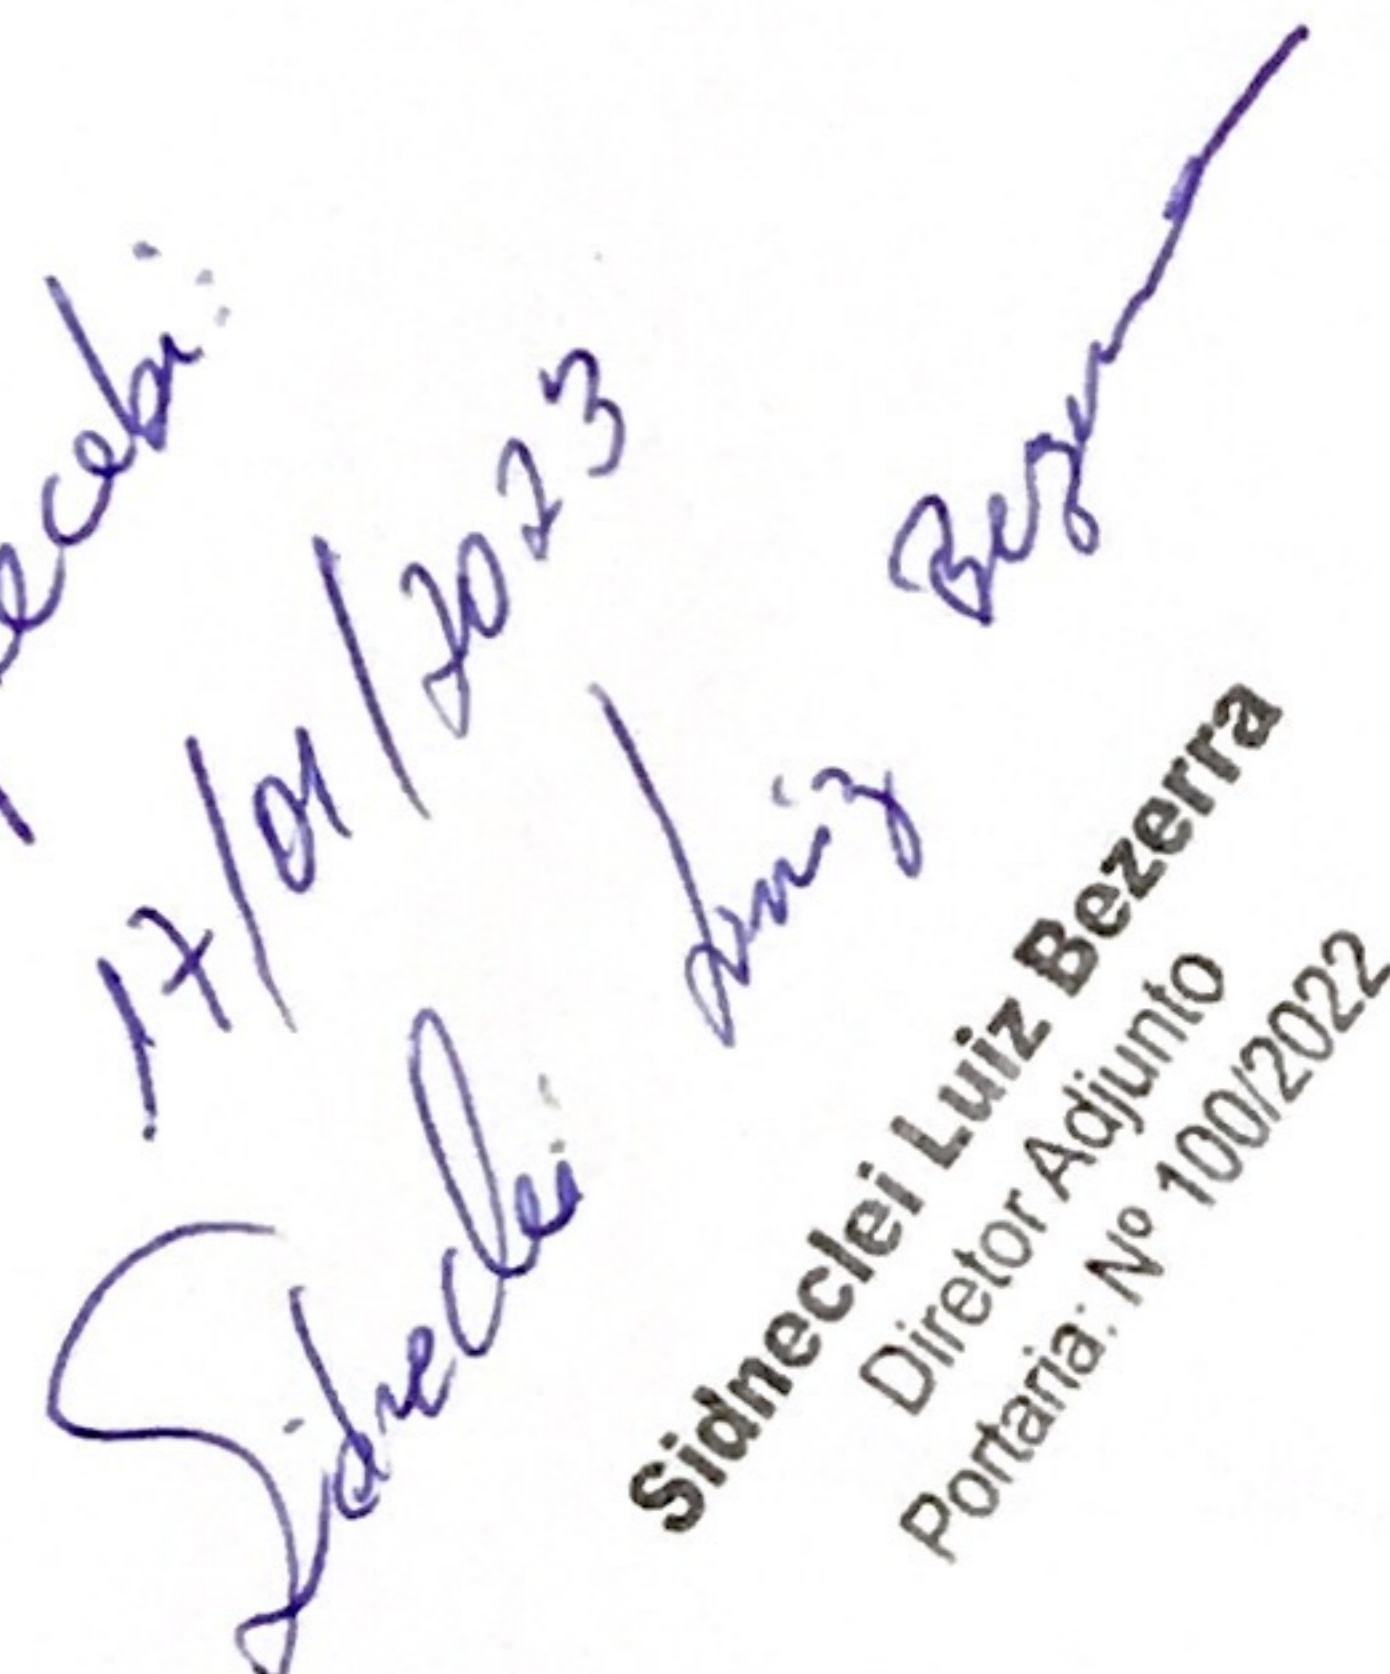 Recebi:
17/01/2023
Sidneclei Luiz Bezerra
Sidneclei Luiz Bezerra
Diretor Adjunto
Portaria: Nº 100/2022